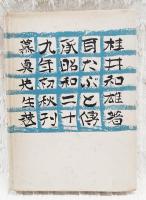 桂井和雄著
耳たぶと傳
承昭和二十
九年初秋刊
史生